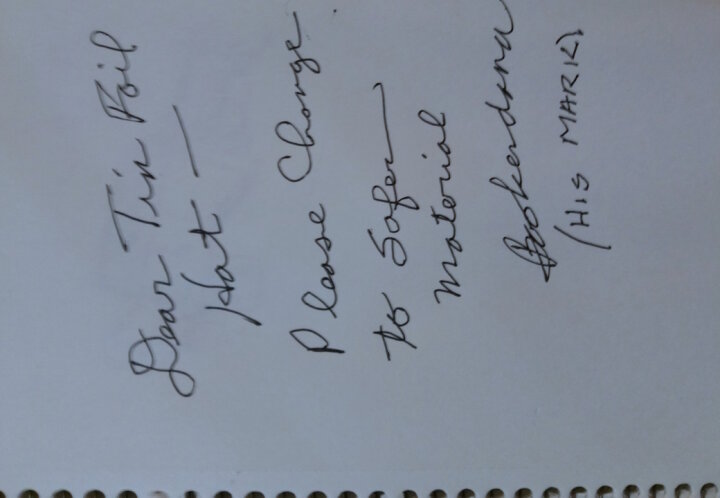 Dear Tin Foil
Hat —
Please Change
to Safer
material
Bookendsna
(HIS MARK)